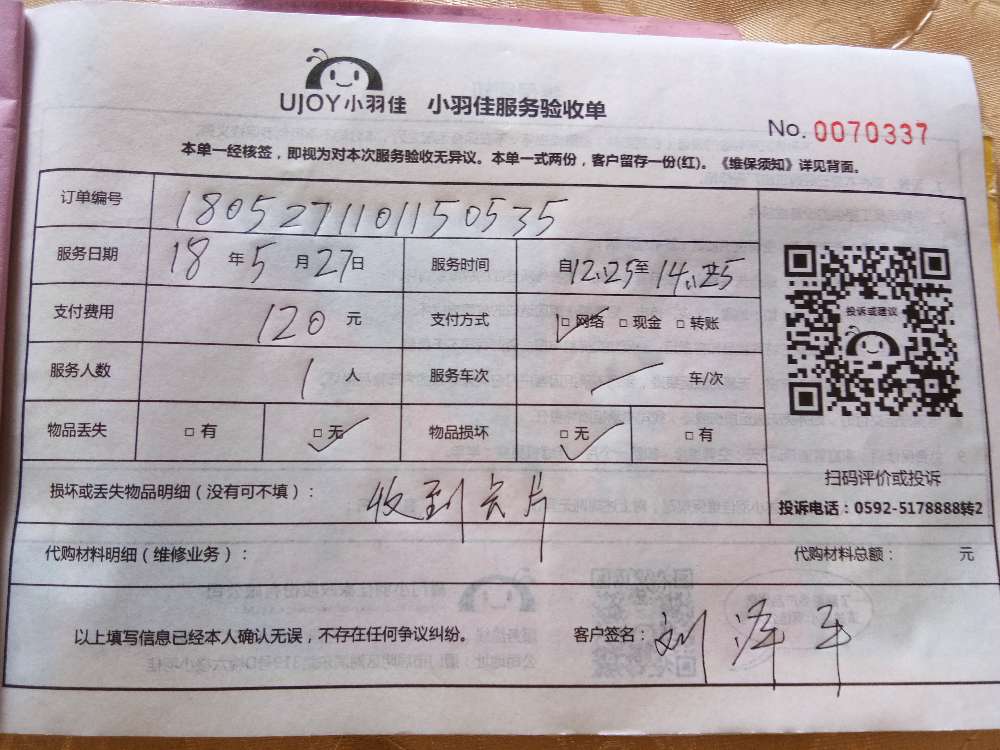 UJOY小羽佳 小羽佳服务验收单
No. 0070337
本单一经核签，即视为对本次服务验收无异议。本单一式两份，客户留存一份(红)。《维保须知》详见背面。
订单编号 1805271101150535
服务日期 18年5月27日 服务时间 自12:25至14:25
支付费用 120元 支付方式 □网络 □现金 □转账
投诉或建议
服务人数 1人 服务车次 车/次
物品丢失 □有 □无 物品损坏 □无 □有
扫码评价或投诉
损坏或丢失物品明细（没有可不填）： 收到卡片
投诉电话：0592-5178888转2
代购材料明细（维修业务）： 代购材料总额： 元
以上填写信息已经本人确认无误，不存在任何争议纠纷。 客户签名：刘泽平